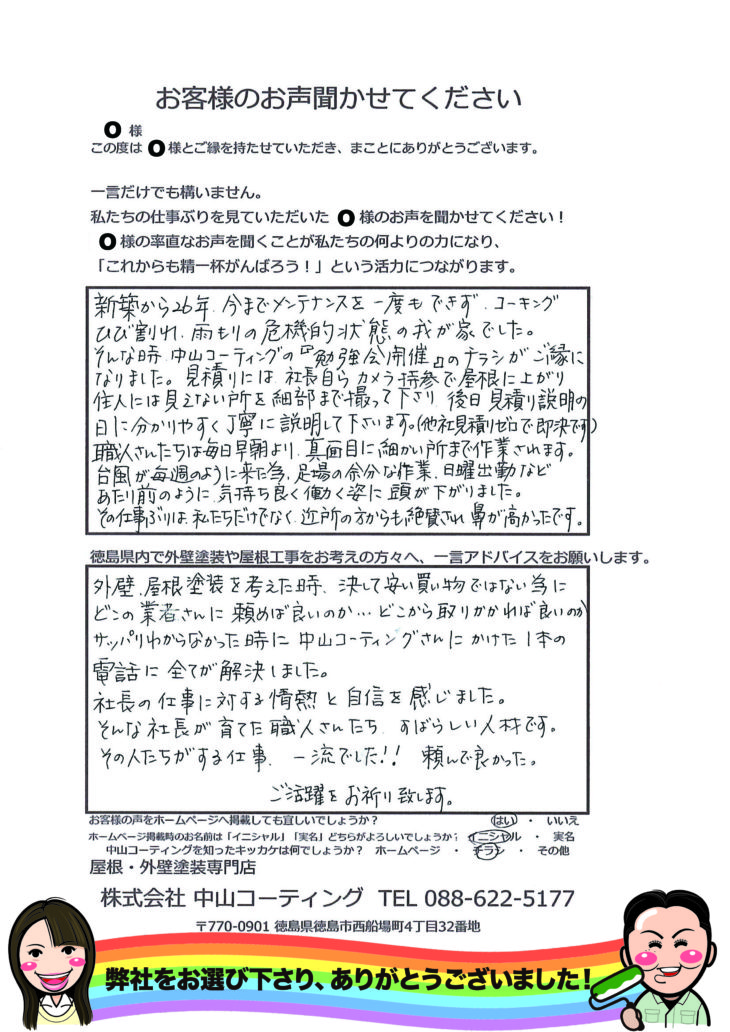 お客様のお声聞かせてください
O 様
この度は O 様とご縁を持たせていただき、まことにありがとうございます。
一言だけでも構いません。
私たちの仕事ぶりを見ていただいた O 様のお声を聞かせてください！
O 様の率直なお声を聞くことが私たちの何よりの力になり、
「これからも精一杯がんばろう！」という活力につながります。
新築から26年、今までメンテナンスを一度もできず、コーキング
ひび割れ、雨もりの危機的状態の我が家でした。
そんな時、中山コーティングの『勉強会開催』のチラシがご縁に
なりました。見積りには、社長自らカメラ持参で屋根に上がり
住人には見えない所を細部まで撮って下さり 後日見積り説明の
日に分かりやすく丁寧に説明して下さいます。(他社見積りゼロで即決です)
職人さんたちは毎日早朝より、真面目に細かい所まで作業されます。
台風が毎週のように来た為、足場の余分な作業、日曜出勤など
あたり前のように、気持ち良く働く姿に頭が下がりました。
その仕事ぶりは、私たちだけでなく、近所の方からも絶賛され鼻が高かったです。
徳島県内で外壁塗装や屋根工事をお考えの方々へ、一言アドバイスをお願いします。
外壁、屋根塗装を考えた時、決して安い買い物ではない為に
どこの業者さんに頼めば良いのか…どこから取りかかれば良いのか
サッパリわからなかった時に中山コーティングさんにかけた1本の
電話に全てが解決しました。
社長の仕事に対する情熱と自信を感じました。
そんな社長が育てた職人さんたち、すばらしい人材です。
その人たちがする仕事、一流でした!! 頼んで良かった。
ご活躍をお祈り致します。
お客様の声をホームページへ掲載しても宜しいでしょうか？ はい ・ いいえ
ホームページ掲載時のお名前は「イニシャル」「実名」どちらがよろしいでしょうか？ イニシャル ・ 実名
中山コーティングを知ったキッカケは何でしょうか？ ホームページ ・ チラシ ・ その他
屋根・外壁塗装専門店
株式会社 中山コーティング TEL 088-622-5177
〒770-0901 徳島県徳島市西船場町4丁目32番地
弊社をお選び下さり、ありがとうございました！